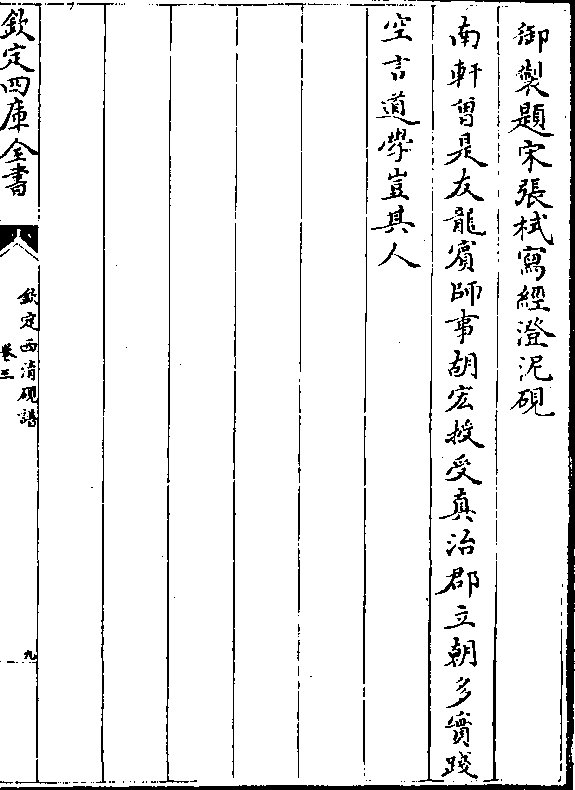 御製題宋張栻寫經澄泥硯
南軒曽是友龍賓師事胡宏授受真治郡立朝多實踐
空言道學豈其人
欽定四庫全書
欽定西清硯譜
卷三
九